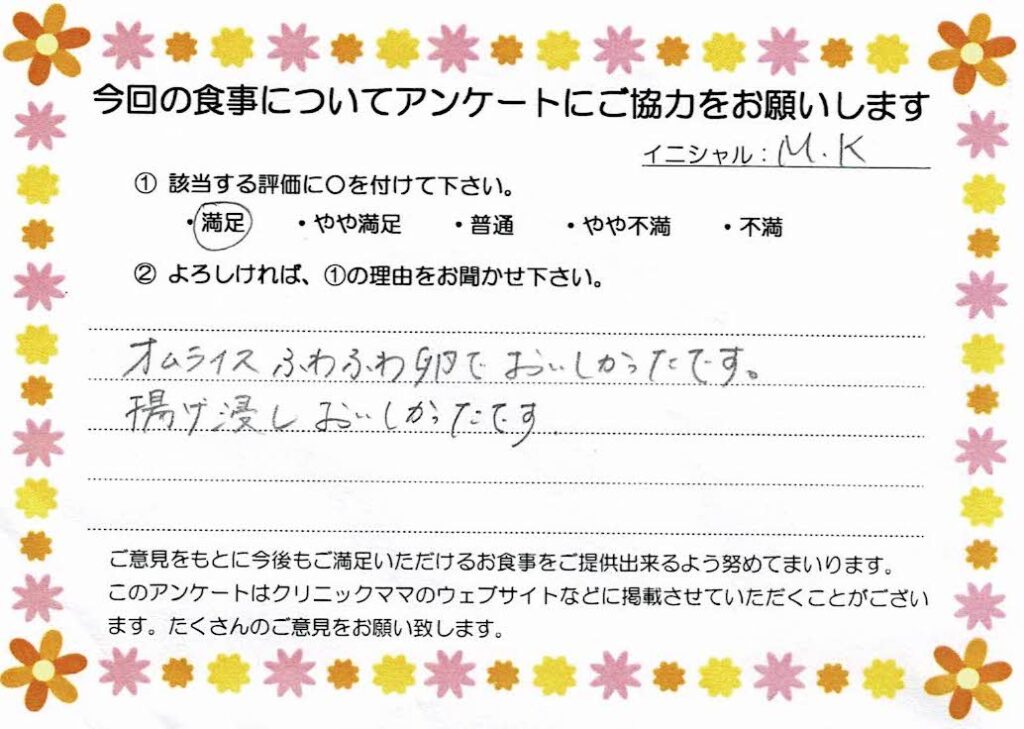 今回の食事についてアンケートにご協力をお願いします
イニシャル：M.K
① 該当する評価に〇を付けて下さい。
・満足 ・やや満足 ・普通 ・やや不満 ・不満
② よろしければ、①の理由をお聞かせ下さい。
オムライスふわふわ卵でおいしかったです。
揚げ浸しおいしかったです
ご意見をもとに今後もご満足いただけるお食事をご提供出来るよう努めてまいります。
このアンケートはクリニックママのウェブサイトなどに掲載させていただくことがござい
ます。たくさんのご意見をお願い致します。